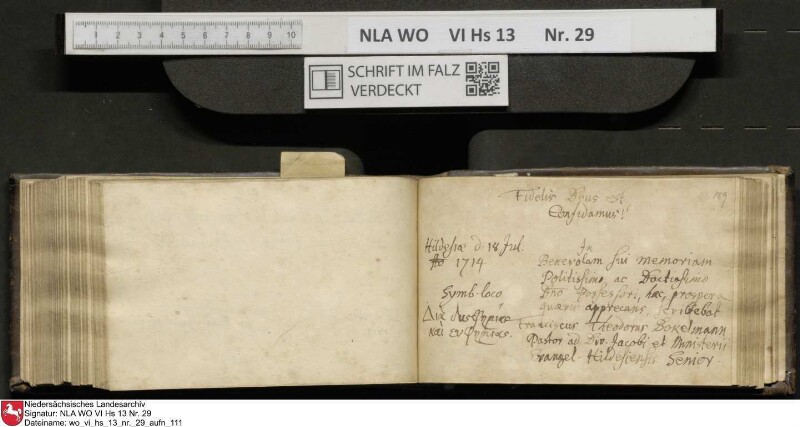 1 2 3 4 5 6 7 8 9 10
NLA WO VI Hs 13 Nr. 29
SCHRIFT IM FALZ
VERDECKT
Fidelis Deus est
Confidamus!
189
Hildesiae d. 18 Jul.
Ao 1714
Symb. loco
Διὰ δυσφημίας
καὶ εὐφημίας.
In
Benevolam sui memoriam
Politissimo ac Doctissimo
Dno Possessori, haec, prospera
quaevis apprecans, scribebat
Franciscus Theodorus Bokelmann
Pastor ad Div. Jacobi et Ministerii
Evangel. Hildesiensis Senior.
Niedersächsisches Landesarchiv
Signatur: NLA WO VI Hs 13 Nr. 29
Dateiname: wo_vi_hs_13_nr._29_aufn_111